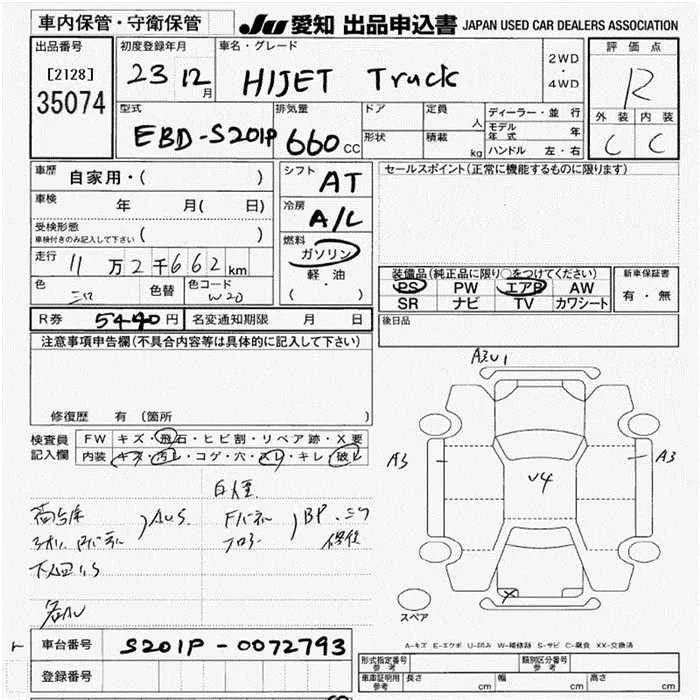 車内保管・守衛保管
JU 愛知 出品申込書 JAPAN USED CAR DEALERS ASSOCIATION
出品番号
[2128]
35074
初度登録年月
23 12月
車名・グレード
HIJET Truck
2WD・4WD
評価点
R
外装 内装
C C
型式
EBD-S201P
排気量
660 CC
ドア
形状
定員 人
積載 kg
ディーラー・並行
モデル年式 年
ハンドル 左・右
車歴
自家用・( )
車検 年 月( 日)
受検形態
車検付きのみ記入して下さい ( )
走行 11万2千662km
色 色替 色コード
W20
シフト
AT
冷房
A/L
燃料
ガソリン
軽・油
( ・ )
セールスポイント(正常に機能するものに限ります)
装備品(純正品に限り○をつけてください)
PS PW エアB AW
SR ナビ TV カワシート
新車保証書
有・無
R券 5440円 名変通知期限 月 日
後日品
注意事項申告欄(不具合内容等は具体的に記入して下さい)
修復歴 有(箇所 )
検査員
記入欄
FW キズ・飛石・ヒビ割・リペア跡・X要
内装 キズ・汚レ・コゲ・穴・スレ・キレ・破レ
A3 U1
A3
A3
V4
X
スペア
A-キズ E-エクボ U-凹み W-補修跡 S-サビ C-腐食 XX-交換済
車台番号 S201P-0072793
登録番号
形式指定番号
参考
類別区分番号
参考
車庫証明用
参考
長さ cm 幅 cm 高さ cm